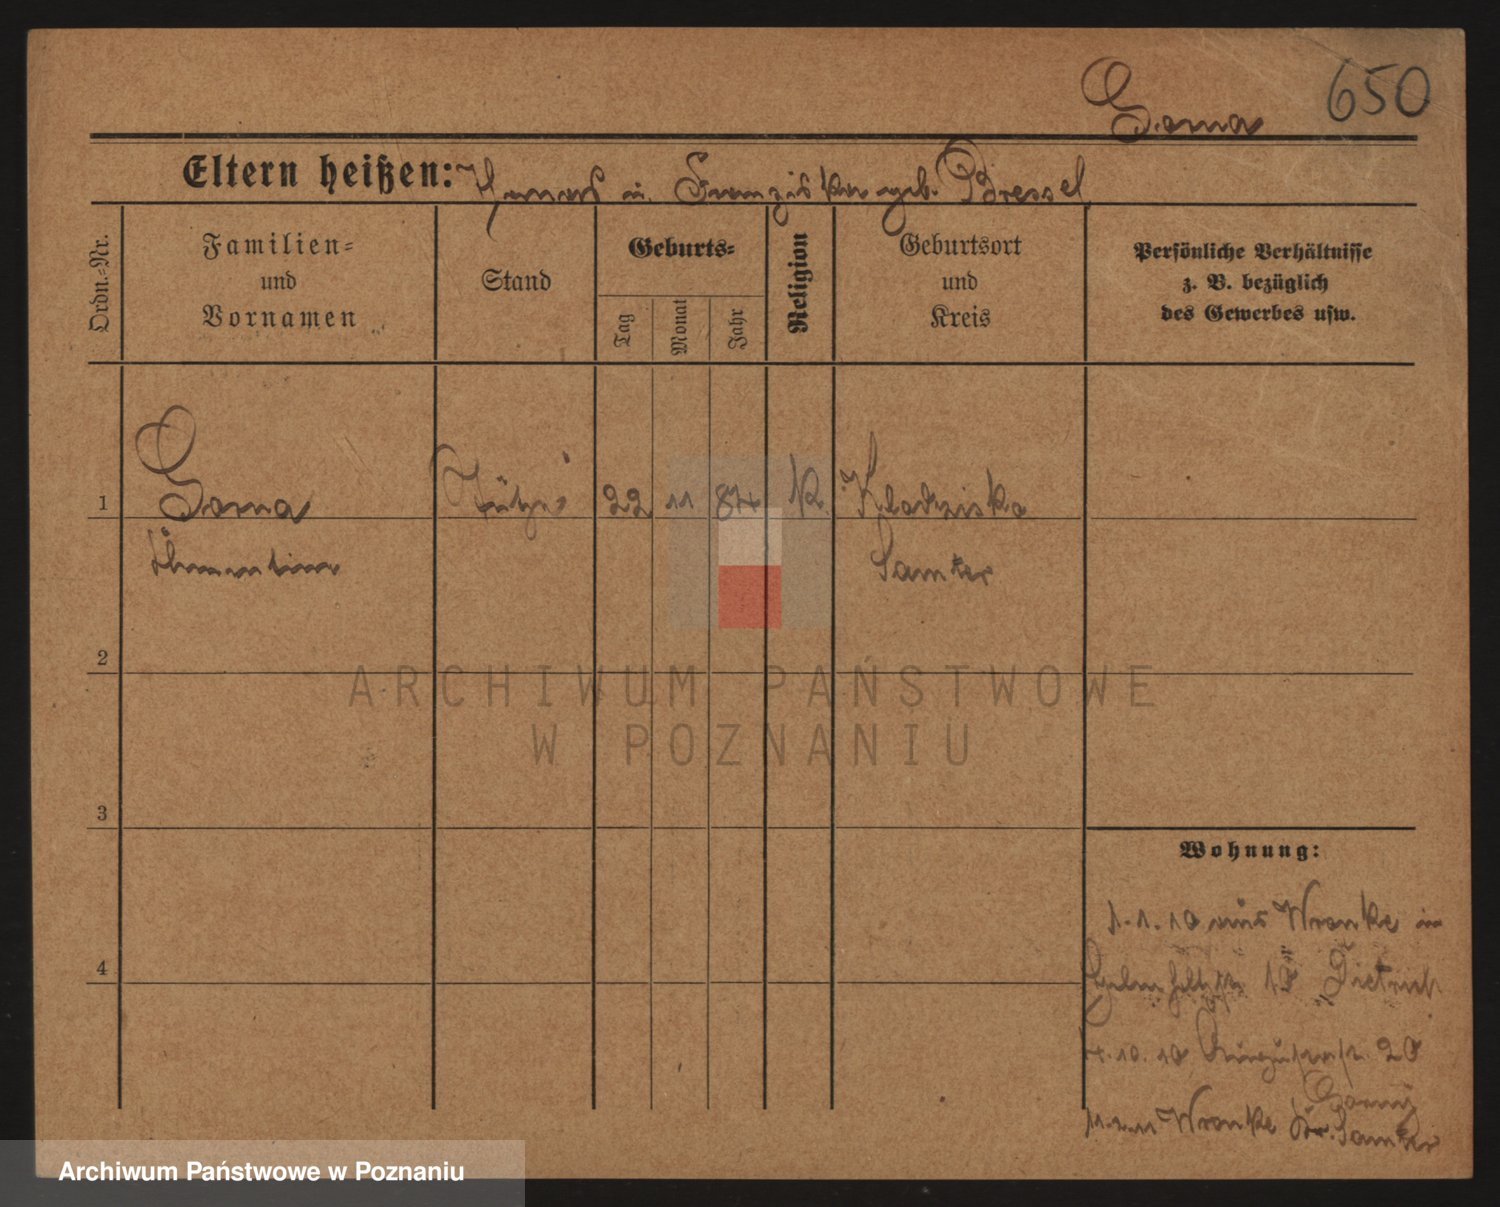 650
Goma
Eltern heißen: u. Franziska geb. Bressel
Ordn.=Nr.
Familien=
und
Vornamen
Stand
Geburts=
Tag
Monat
Jahr
Religion
Geburtsort
und
Kreis
Persönliche Verhältnisse
z. B. bezüglich
des Gewerbes usw.
1 Goma Stütze 22 11 84 K Kladziska
Samter
2
ARCHIWUM PAŃSTWOWE
W POZNANIU
3
Wohnung:
1.1.10 aus Wronke in
18 Dietrich
4
4.10.10 20
Wronke Kr. Samter
Archiwum Państwowe w Poznaniu